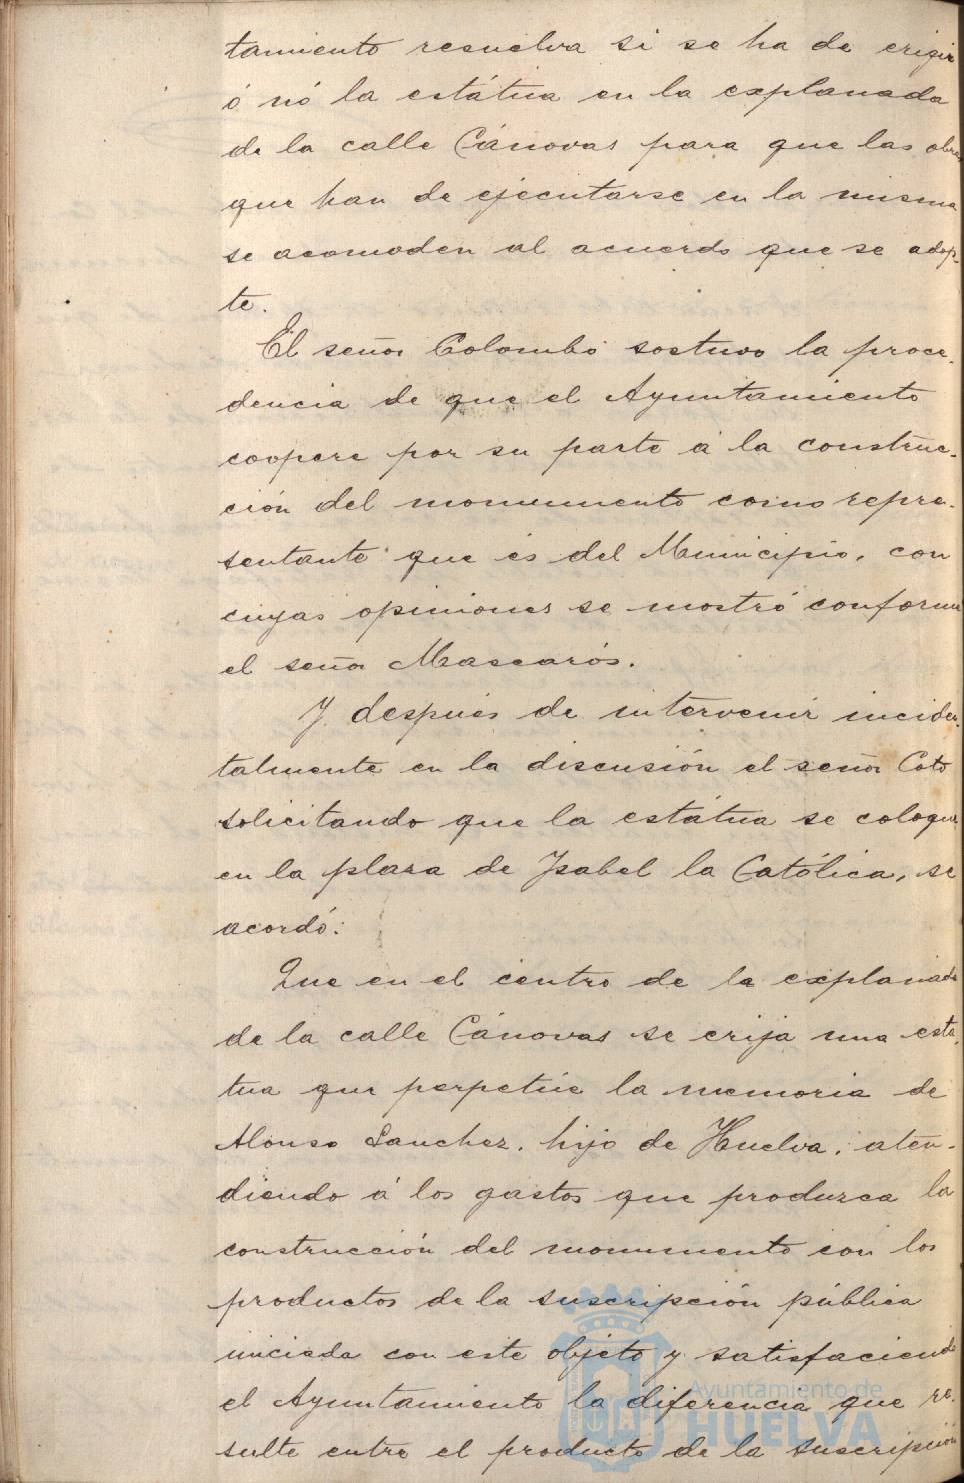 tamiento resuelva si se ha de erigir
ó nó la estátua en la explanada
de la calle Cánovas para que las obras
que han de ejecutarse en la misma
se acomoden al acuerdo que se adop-
te.
El señor Colombo sostuvo la proce-
dencia de que el Ayuntamiento
coopere por su parte á la construc-
ción del monumento como repre-
sentante que és del Municipio, con
cuyas opiniones se mostró conforme
el señor Mascarós.
Y después de intervenir inciden-
talmente en la discusión el señor Coto
solicitando que la estátua se coloque
en la plaza de Ysabel la Católica, se
acordó:
Que en el centro de la explanada
de la calle Cánovas se erija una está-
tua que perpetúe la memoria de
Alonso Sanchez, hijo de Huelva, aten-
diendo á los gastos que produzca la
construcción del monumento con los
productos de la suscripción pública
iniciada con este objeto y satisfaciendo
el Ayuntamiento la diferencia que re-
sulte entre el producto de la suscripción
Ayuntamiento de
HUELVA